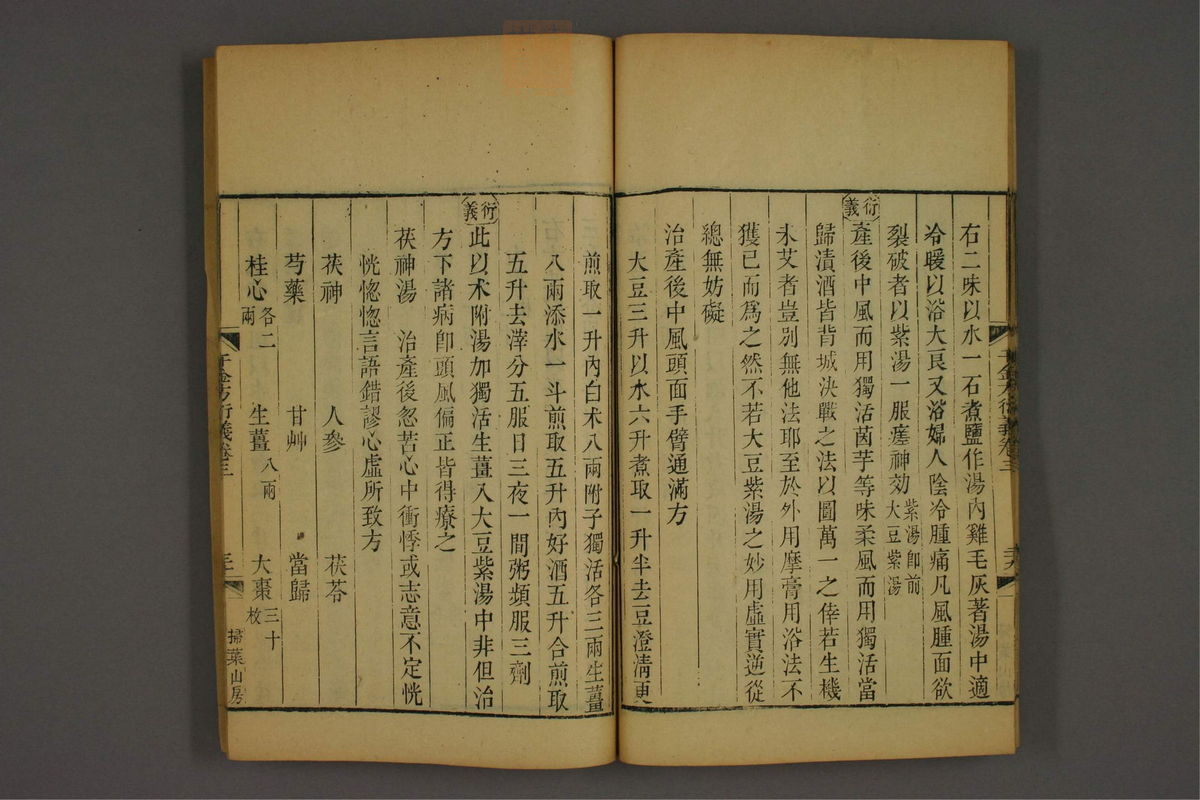 右二味以水一石煮鹽作湯內雞毛灰著湯中適
冷暖以浴大良又浴婦人陰冷腫痛凡風腫面欲
裂破者以紫湯一服瘥神効紫湯卽前
大豆紫湯
衍義
產後中風而用獨活茵芋等味柔風而用獨活當
歸漬酒皆背城決戰之法以圖萬一之倖若生機
未艾者豈別無他法耶至於外用摩膏用浴法不
獲已而爲之然不若大豆紫湯之妙用虛實逆從
總無妨礙
治產後中風頭面手臂通滿方
大豆三升以水六升煮取一升半去豆澄清更
煎取一升內白术八兩附子獨活各三兩生薑
八兩添水一斗煎取五升內好酒五升合煎取
五升去滓分五服日三夜一間粥頻服三劑
衍義
此以术附湯加獨活生薑入大豆紫湯中非但治
方下諸病卽頭風偏正皆得療之
茯神湯　治產後忽苦心中衝悸或志意不定恍
恍惚惚言語錯謬心虛所致方
茯神　人參　茯苓
芍藥　甘艸　當歸
桂心各二兩　生薑八兩　大棗三十枚
千金方衍義卷三
掃葉山房